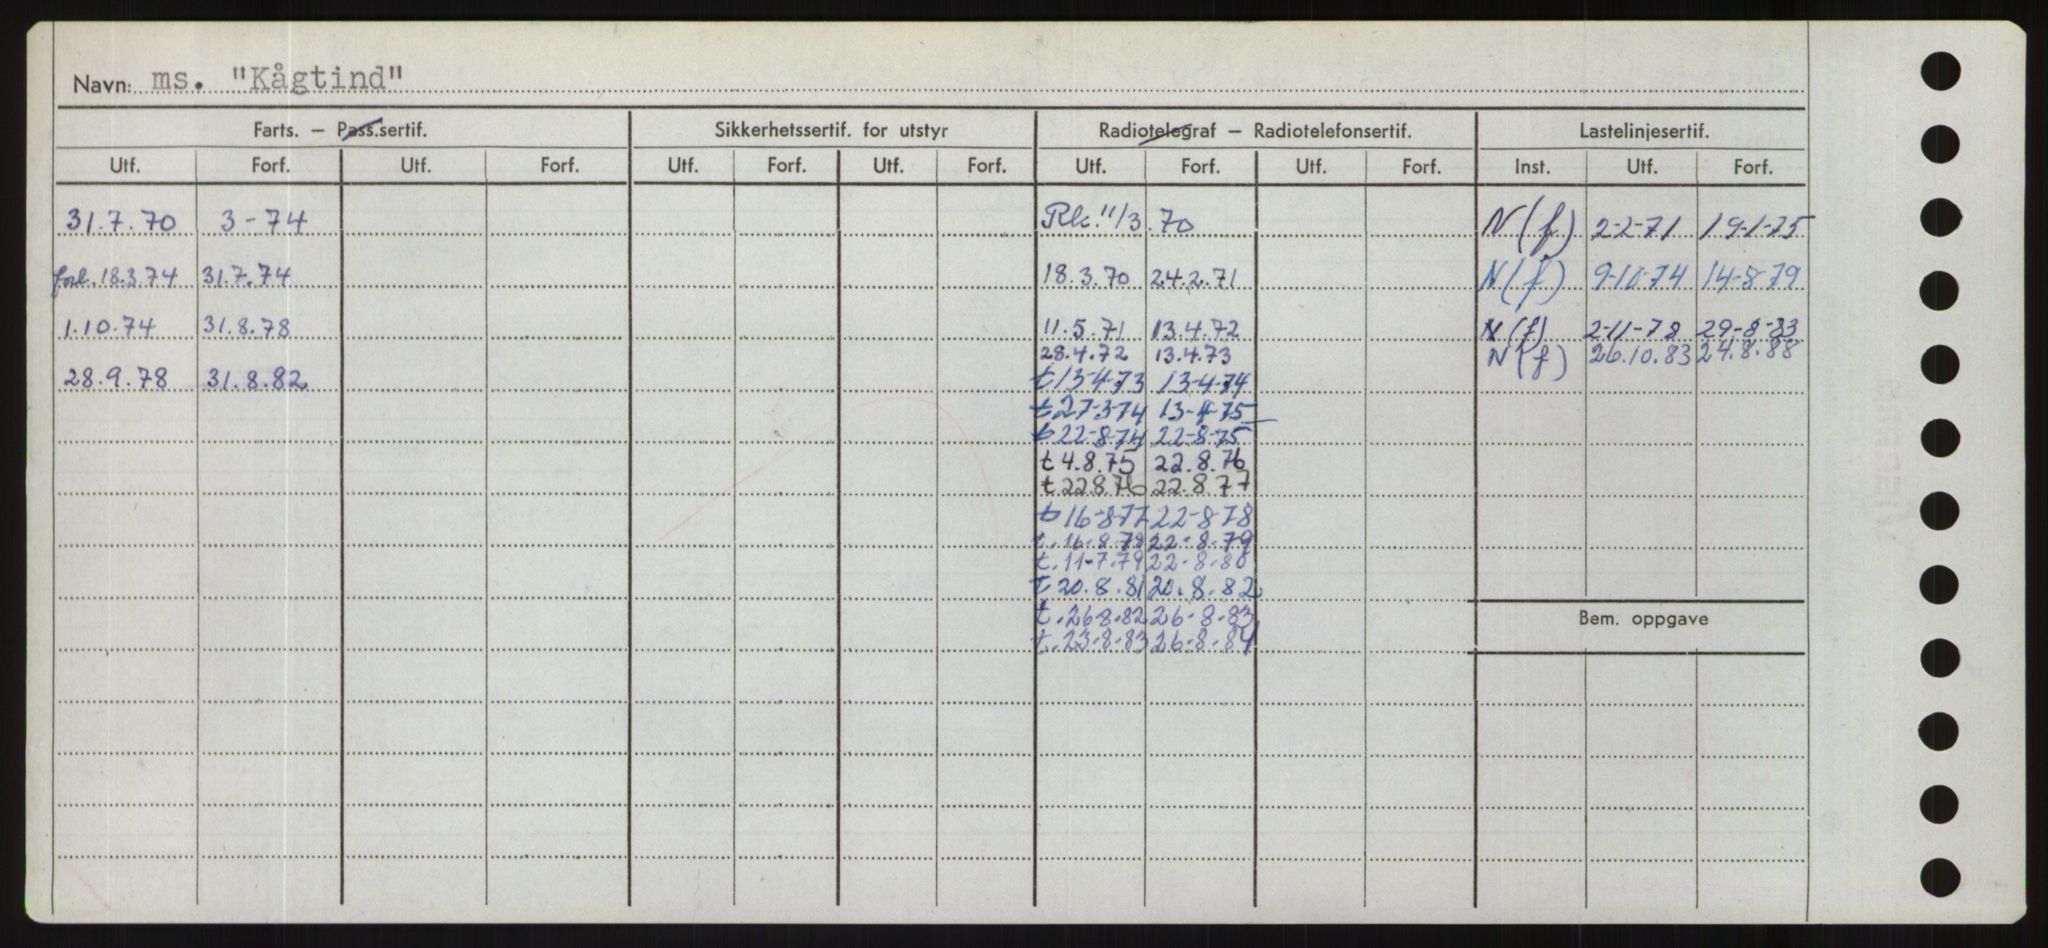 Navn: ms. "Kågtind"
Farts. – Pass.sertif. Sikkerhetssertif. for utstyr Radiotelegraf – Radiotelefonsertif. Lastelinjesertif.
Utf. Forf. Utf. Forf. Utf. Forf. Utf. Forf. Utf. Forf. Utf. Forf. Inst. Utf. Forf.
31.7.70 3-74 Rk. 11/3.70 N(f) 2-2-71 19-1-75
forl. 18.3.74 31.7.74 18.3.70 24.2.71 N(f) 9-10-74 14-8-79
1.10.74 31.8.78 11.5.71 13.4.72 N(f) 2-11-78 29-8-83
28.4.72 13.4.73 N(f) 26.10.83 24.8.88
28.9.78 31.8.82 t 13-4-73 13-4-74
t 27-3-74 13-4-75
t 22-8-74 22-8-75
t 4.8.75 22.8.76
t 22.8.76 22.8.77
t 16-8-77 22-8-78
t. 16.8.78 22-8.79
t. 11-7.79 22-8.80
t 20.8.81 20.8.82
t. 26-8.82 26-8-83
t. 23-8-83 26-8-84
Bem. oppgave